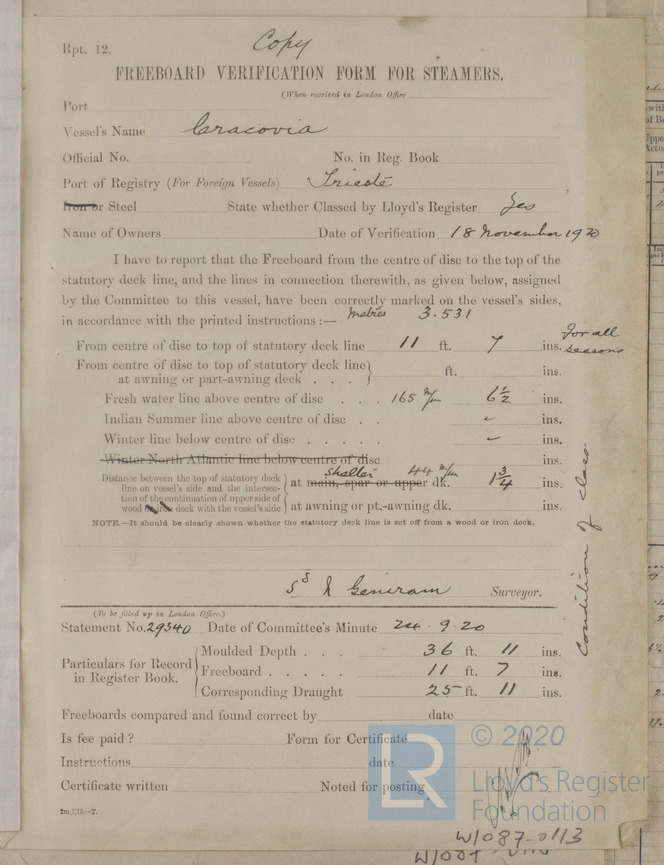 Rpt. 12.
Copy
FREEBOARD VERIFICATION FORM FOR STEAMERS.
(When received in London Office
Port
Vessel's Name Cracovia
Official No. No. in Reg. Book
Port of Registry (For Foreign Vessels) Trieste
Iron or Steel State whether Classed by Lloyd's Register Yes
Name of Owners Date of Verification 18 November 1920
I have to report that the Freeboard from the centre of disc to the top of the
statutory deck line, and the lines in connection therewith, as given below, assigned
by the Committee to this vessel, have been correctly marked on the vessel's sides,
in accordance with the printed instructions :— Metres 3.531
From centre of disc to top of statutory deck line 11 ft. 7 ins. For all seasons
From centre of disc to top of statutory deck line
at awning or part-awning deck . . . ft. ins.
Fresh water line above centre of disc . . . 165 m/m 6½ ins.
Indian Summer line above centre of disc . . - ins.
Winter line below centre of disc . . . . . - ins.
Winter North Atlantic line below centre of disc ins.
Distance between the top of statutory deck
line on vessel's side and the intersec-
tion of the continuation of upper side of
wood or iron deck with the vessel's side
Shelter 44 m/m
at main, spar or upper dk. 1¾ ins.
at awning or pt.-awning dk. ins.
NOTE.—It should be clearly shown whether the statutory deck line is set off from a wood or iron deck.
Condition of class.
Surveyor.
(To be filled up in London Office.)
Statement No. 29340 Date of Committee's Minute 24.9.20
Particulars for Record
in Register Book.
Moulded Depth . . . 36 ft. 11 ins.
Freeboard . . . . . 11 ft. 7 ins.
Corresponding Draught 25 ft. 11 ins.
Freeboards compared and found correct by date
Is fee paid? Form for Certificate
Instructions date
Certificate written Noted for posting
2m,7,19.—T.
LR
© 2020
Lloyd's Register
Foundation
W1087-0113